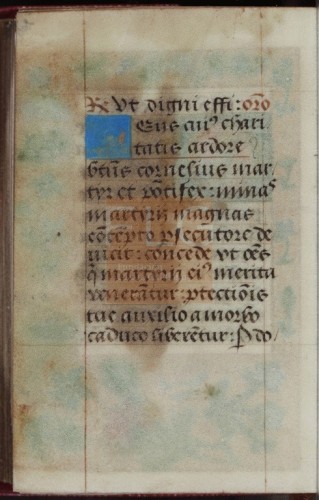 R Ut digni effi: oro
Eus cui9 chari
tatis ardore
btus cornelius mar
tyr et potifex: minas
martyrij magnas
cotepto psecutore de
uicit: concede ut oes
q martyrij ei9 merita
venerantur: ptectiois
tue auxilio a morbo
caduco liberetur: P do